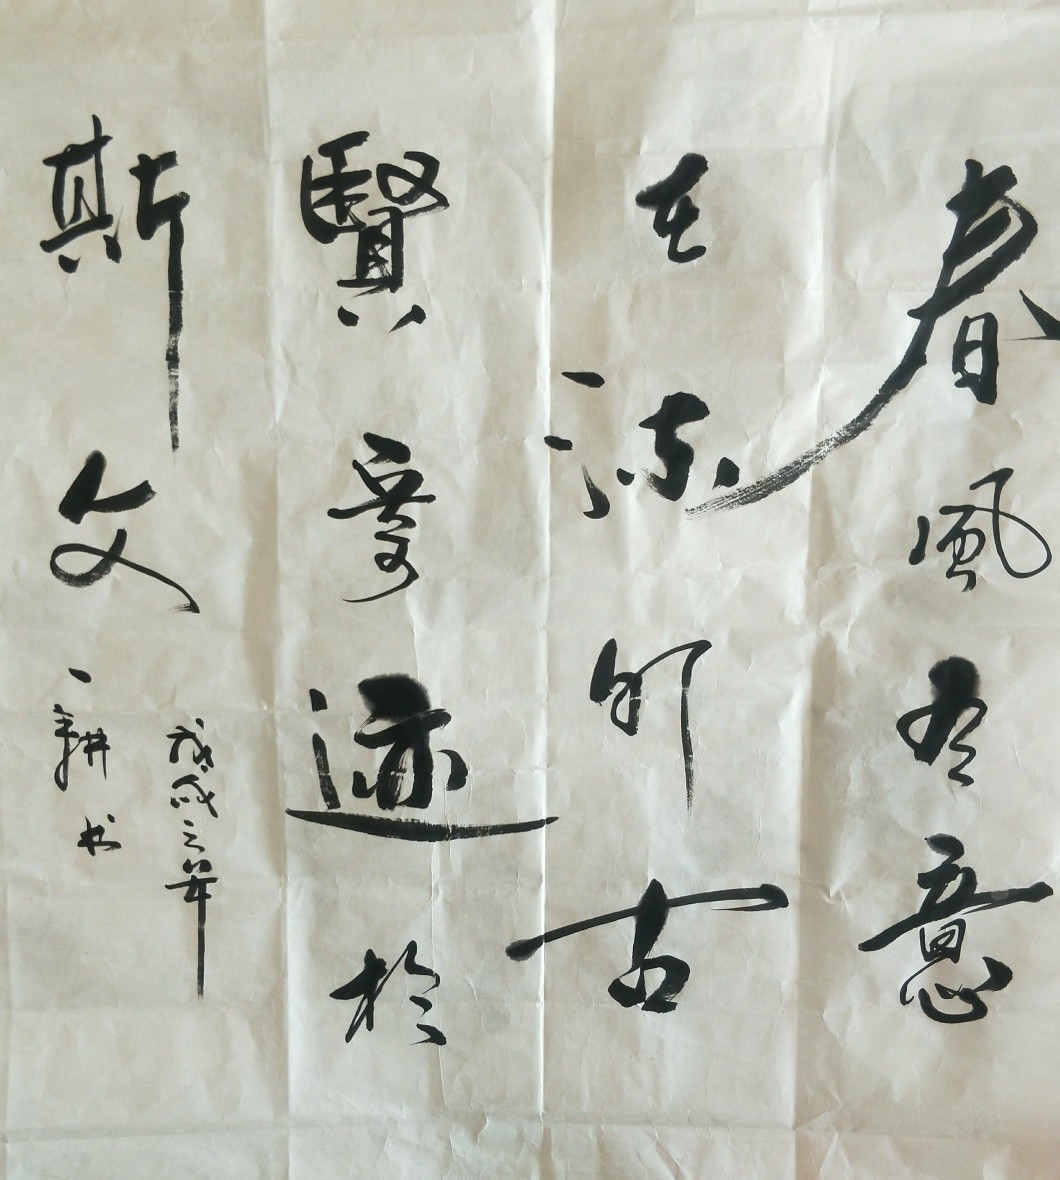 春風有意
在流古
賢寄迹於
斯文
戊戌之年
一耕书